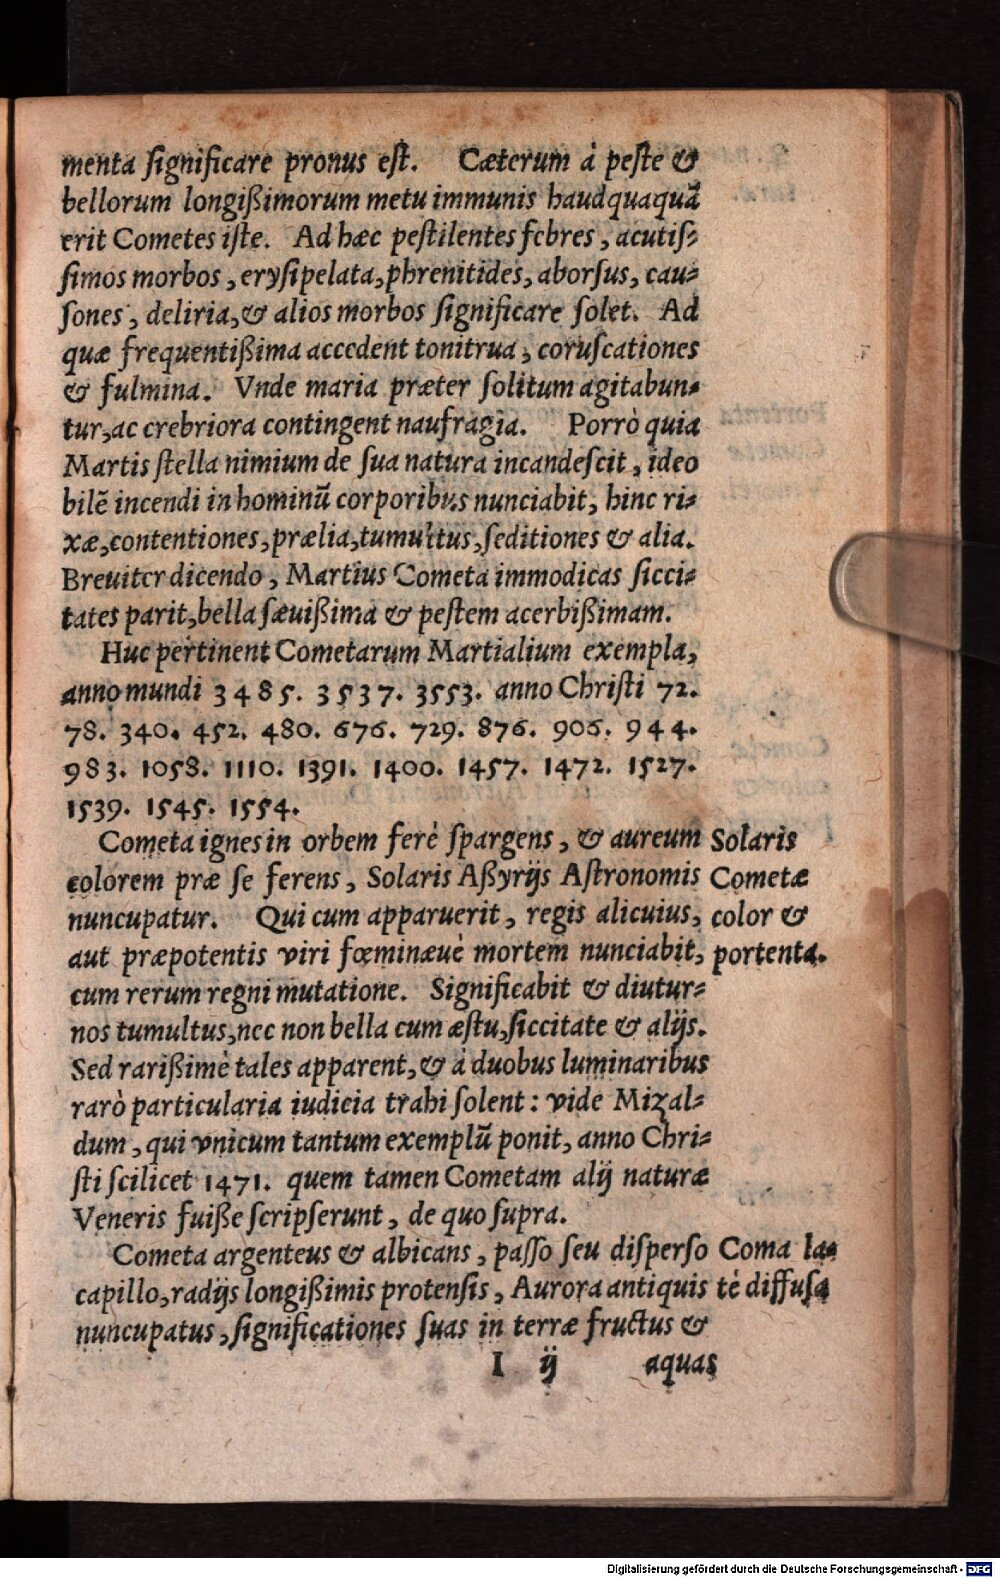 menta ſignificare pronus eſt. Cæterum à peſte &
bellorum longißimorum metu immunis haudquaquā
erit Cometes iſte. Ad hæc peſtilentes febres, acutiſ-
ſimos morbos, eryſipelata, phrenitides, aborſus, cau-
ſones, deliria, & alios morbos ſignificare ſolet. Ad
quæ frequentißima accedent tonitrua, coruſcationes
& fulmina. Vnde maria præter ſolitum agitabun-
tur, ac crebriora contingent naufragia. Porrò quia
Martis ſtella nimium de ſua natura incandeſcit, ideo
bilē incendi in hominū corporibus nunciabit, hinc ri-
xæ, contentiones, prælia, tumultus, ſeditiones & alia.
Breuiter dicendo, Martius Cometa immodicas ſicci-
tates parit, bella ſæuißima & peſtem acerbißimam.
Huc pertinent Cometarum Martialium exempla,
anno mundi 3485. 3537. 3553. anno Chriſti 72.
78. 340. 452. 480. 676. 729. 876. 906. 944.
983. 1058. 1110. 1391. 1400. 1457. 1472. 1527.
1539. 1545. 1554.
Cometa ignes in orbem ferè ſpargens, & aureum
colorem præ ſe ferens, Solaris Aßyrijs Aſtronomis
nuncupatur. Qui cum apparuerit, regis alicuius,
aut præpotentis viri fœminæuè mortem nunciabit,
cum rerum regni mutatione. Significabit & diutur-
nos tumultus, nec non bella cum æſtu, ſiccitate & alijs.
Sed rarißimè tales apparent, & à duobus luminaribus
rarò particularia iudicia trahi ſolent: vide Mizal-
dum, qui vnicum tantum exemplū ponit, anno Chri-
ſti ſcilicet 1471. quem tamen Cometam alij naturæ
Veneris fuiße ſcripſerunt, de quo ſupra.
Cometa argenteus & albicans, paſſo ſeu diſperſo
capillo, radijs longißimis protenſis, Aurora antiquis
nuncupatus, ſignificationes ſuas in terræ fructus &
I ij aquas
Solaris
Cometæ
color &
portenta.
Coma la-
tè diffuſa
Digitalisierung gefördert durch die Deutsche Forschungsgemeinschaft - DFG